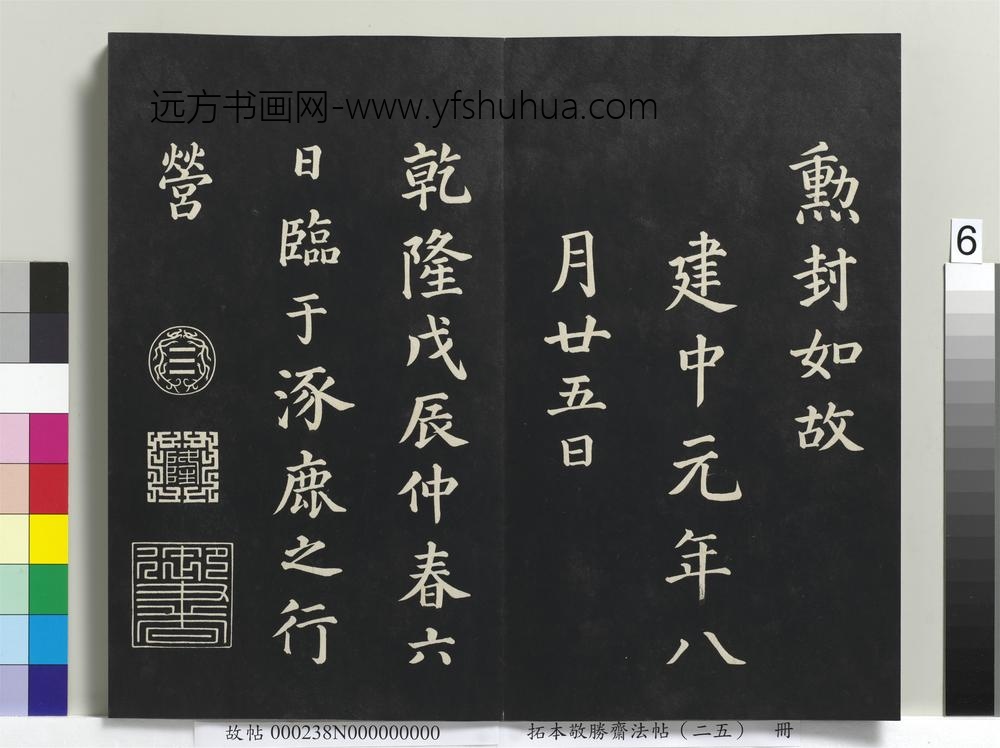 远方书画网-www.yfshuhua.com
勲封如故
建中元年八
月廿五日
乾隆戊辰仲春六
日臨于涿鹿之行
營
三
乾隆
御書
6
故帖 000238N000000000
拓本敬勝齋法帖（二五） 冊